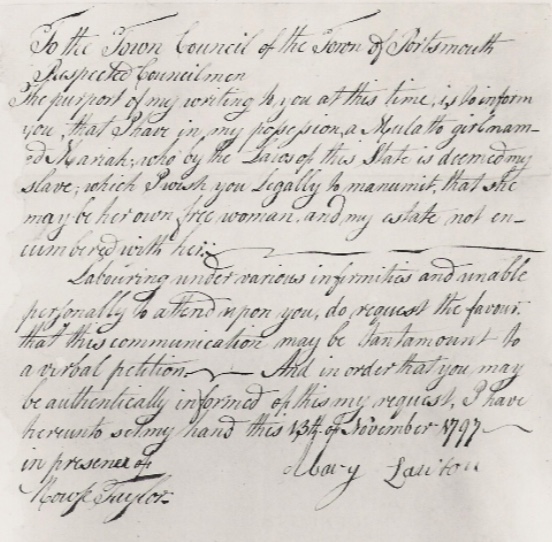 To the Town Council of the Town of Portsmouth
Respected Councilmen
The purport of my writing to you at this time, is to inform
you, that I have in my posession, a Mulatto girl nam-
ed Mariah, who by the Laws of this State is deemed my
slave; which I wish you Legally to manumit, that she
may be her own free woman, and my estate not en-
cumbered with her:
Labouring under various infirmities and unable
personally to attend upon you, do request the favour,
that this communication may be tantamount to
a verbal petition And in order that you may
be authentically informed of this my request, I have
hereunto set my hand this 13th of November 1797
in presence of Mary Lawton
Rowse Taylor